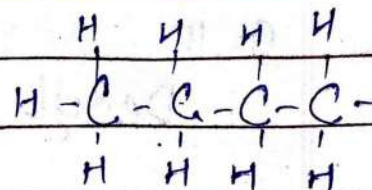 H H H H
H - C - C - C - C -
H H H H